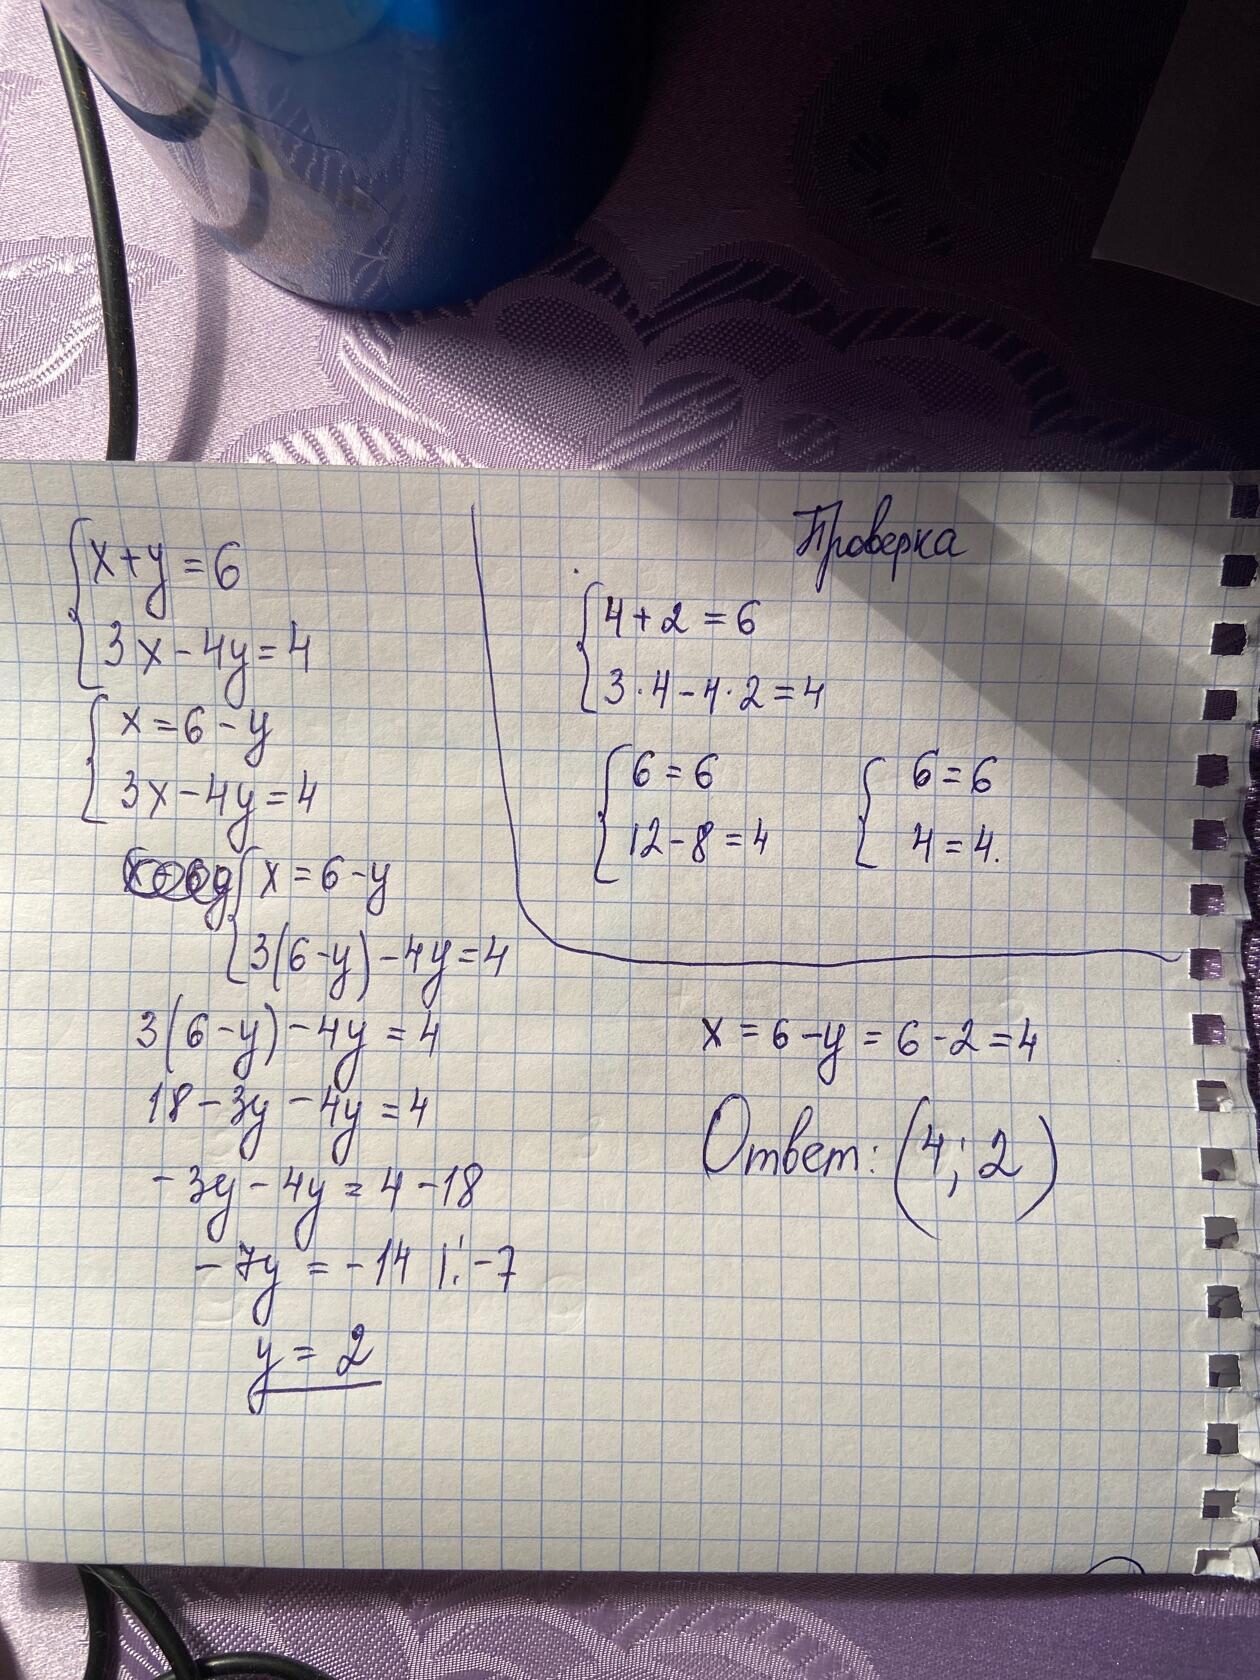 x+y=6
3x-4y=4
x=6-y
3x-4y=4
x=6-y
3(6-y)-4y=4
3(6-y)-4y=4
18-3y-4y=4
-3y-4y=4-18
-7y=-14 |:-7
y=2
Проверка
4+2=6
3·4-4·2=4
6=6
12-8=4
6=6
4=4.
x=6-y=6-2=4
Ответ: (4; 2)